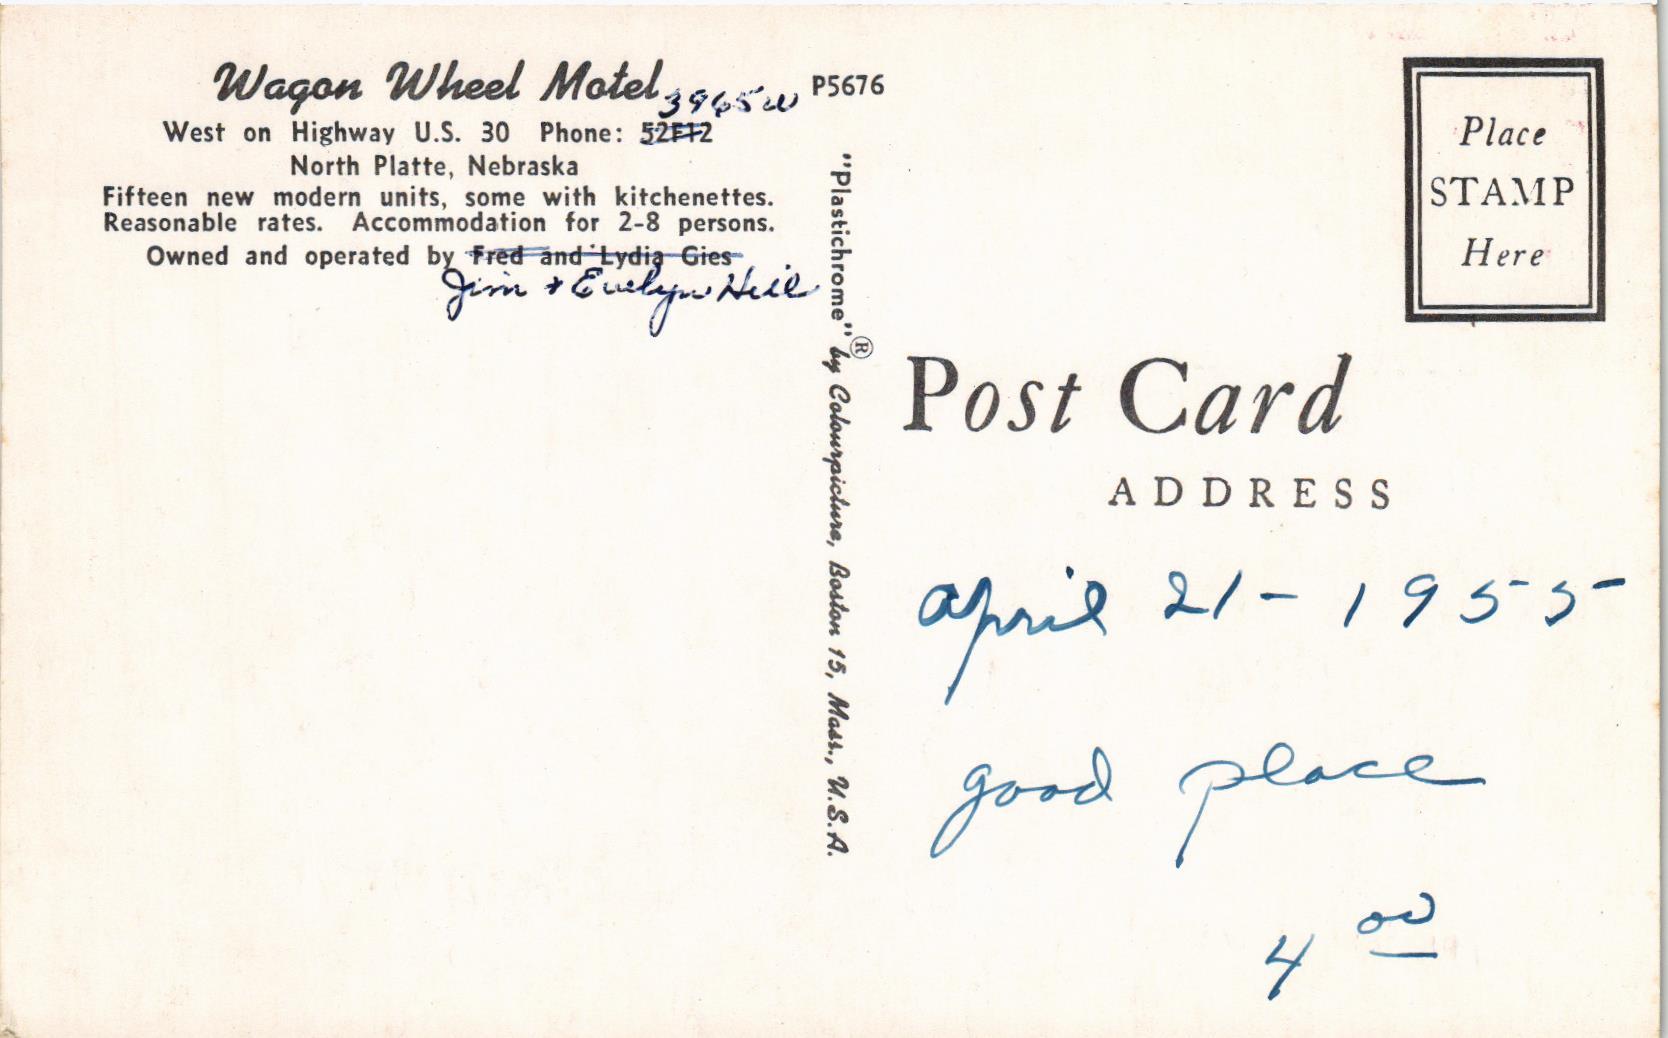 Wagon Wheel Motel
3965W
P5676
West on Highway U.S. 30 Phone: 52F12
North Platte, Nebraska
Fifteen new modern units, some with kitchenettes.
Reasonable rates. Accommodation for 2-8 persons.
Owned and operated by Fred and Lydia Gies
Jim + Evelyn Hill
"Plastichrome"® by Colourpicture, Boston 15, Mass., U.S.A.
Place
STAMP
Here
Post Card
ADDRESS
april 21 - 1955
good place
4 00